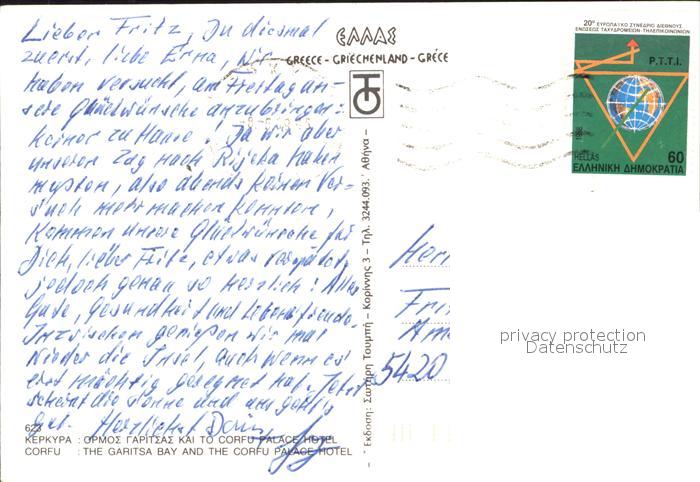 Lieber Fritz, Du diesmal
zuerst, liebe Erna, wir
haben versucht, am Freitag un-
sere Glückwünsche anzubringen:
keiner zu Hause! Da wir aber
unseren Zug nach Rijeka haben
mußten, also abends keinen Ver-
such mehr machen konnten,
kommen unsere Glückwünsche für
Dich, lieber Fritz, etwas verspätet,
jedoch genau so herzlich: Alles
Gute, Gesundheit und Lebensfreude.
Inzwischen genießen wir mal
wieder die Insel, auch wenn es
erst mächtig geregnet hat. Jetzt
scheint die Sonne und uns geht's
gut. Herzlichst
623
ΚΕΡΚΥΡΑ : ΟΡΜΟΣ ΓΑΡΙΤΣΑΣ ΚΑΙ ΤΟ CORFU PALACE HOTEL
CORFU : THE GARITSA BAY AND THE CORFU PALACE HOTEL
ΕΛΛΑΣ
GREECE - GRIECHENLAND - GRÈCE
Έκδοση: Σωτήρη Τουμπή – Κορίννης 3 – Τηλ. 3244.093. Αθήνα –
20º ΕΥΡΩΠΑΪΚΟ ΣΥΝΕΔΡΙΟ ΔΙΕΘΝΟΥΣ
ΕΝΩΣΕΩΣ ΤΑΧΥΔΡΟΜΕΙΩΝ-ΤΗΛΕΠΙΚΟΙΝΩΝΙΩΝ
P.T.T.I.
HELLAS 60
ΕΛΛΗΝΙΚΗ ΔΗΜΟΚΡΑΤΙΑ
Fri
Am
5420
privacy protection
Datenschutz